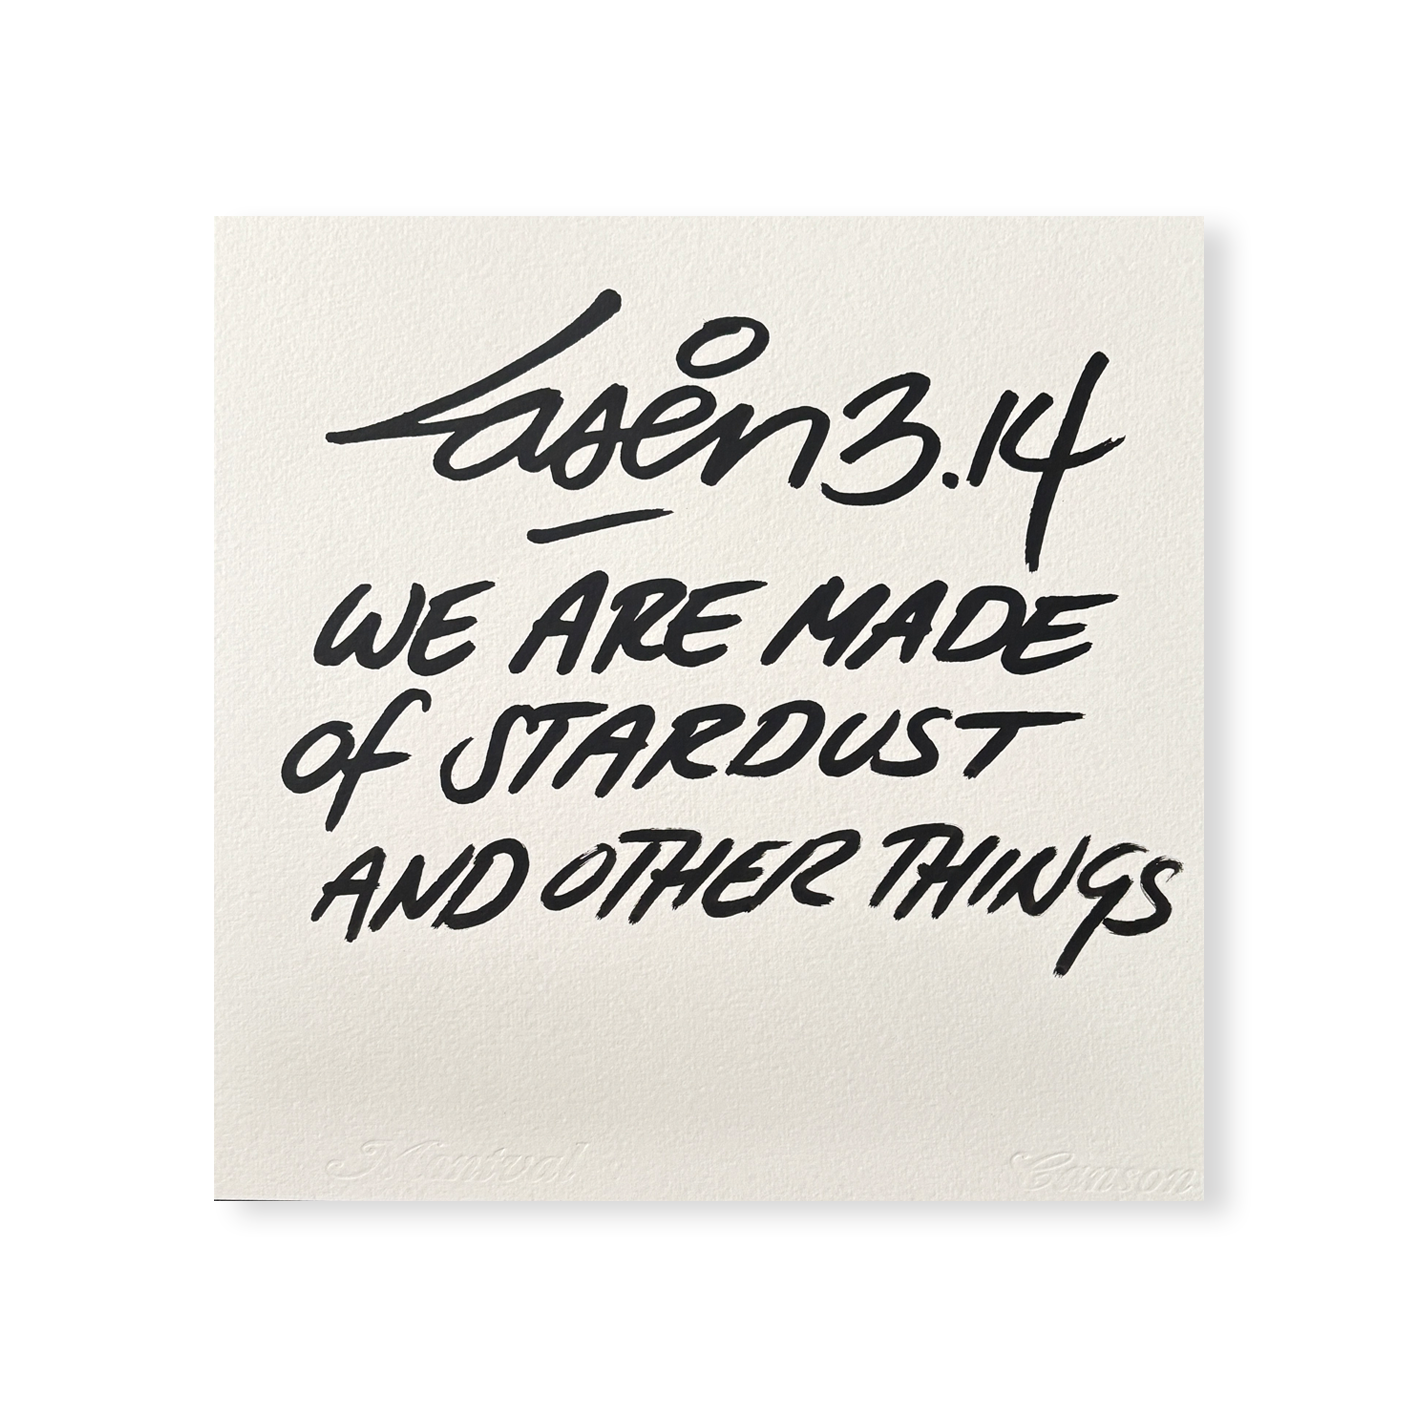 Laser 3.14
WE ARE MADE
of STARDUST
AND OTHER THINGS
Montval
Canson